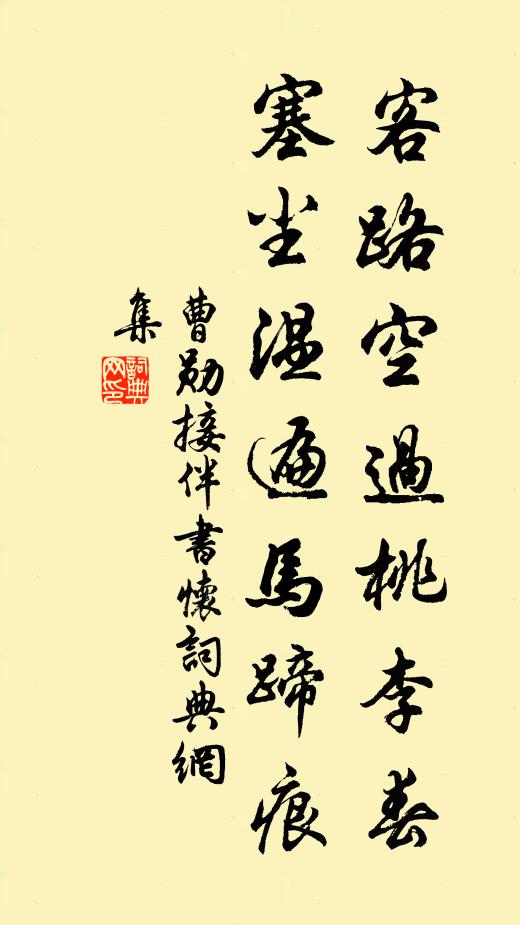 客路空過桃李春
塞尘温遍馬蹄痕
曹勋接伴書懷詞典網
集
詞典
网印